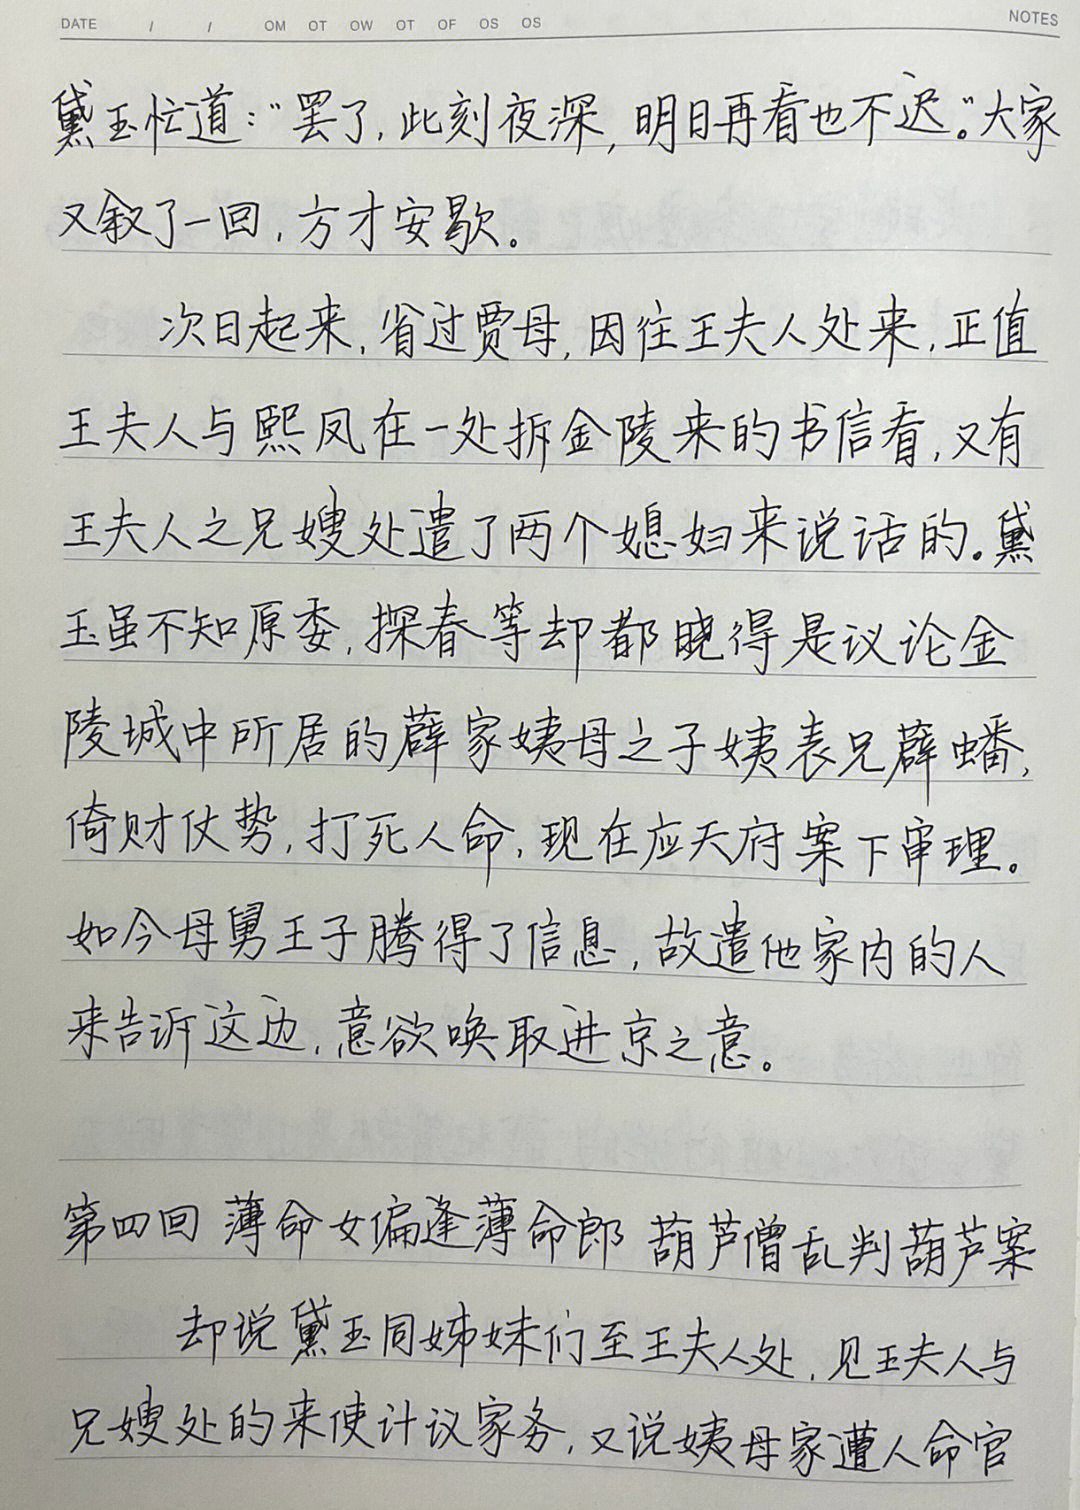 DATE / / OM OT OW OT OF OS OS NOTES
黛玉忙道：“罢了，此刻夜深，明日再看也不迟。”大家
又叙了一回，方才安歇。
次日起来，省过贾母，因往王夫人处来，正值
王夫人与熙凤在一处拆金陵来的书信看，又有
王夫人之兄嫂处遣了两个媳妇来说话的。黛
玉虽不知原委，探春等却都晓得是议论金
陵城中所居的薛家姨母之子姨表兄薛蟠，
倚财仗势，打死人命，现在应天府案下审理。
如今母舅王子腾得了信息，故遣他家内的人
来告诉这边，意欲唤取进京之意。
第四回 薄命女偏逢薄命郎 葫芦僧乱判葫芦案
却说黛玉同姊妹们至王夫人处，见王夫人与
兄嫂处的来使计议家务，又说姨母家遭人命官